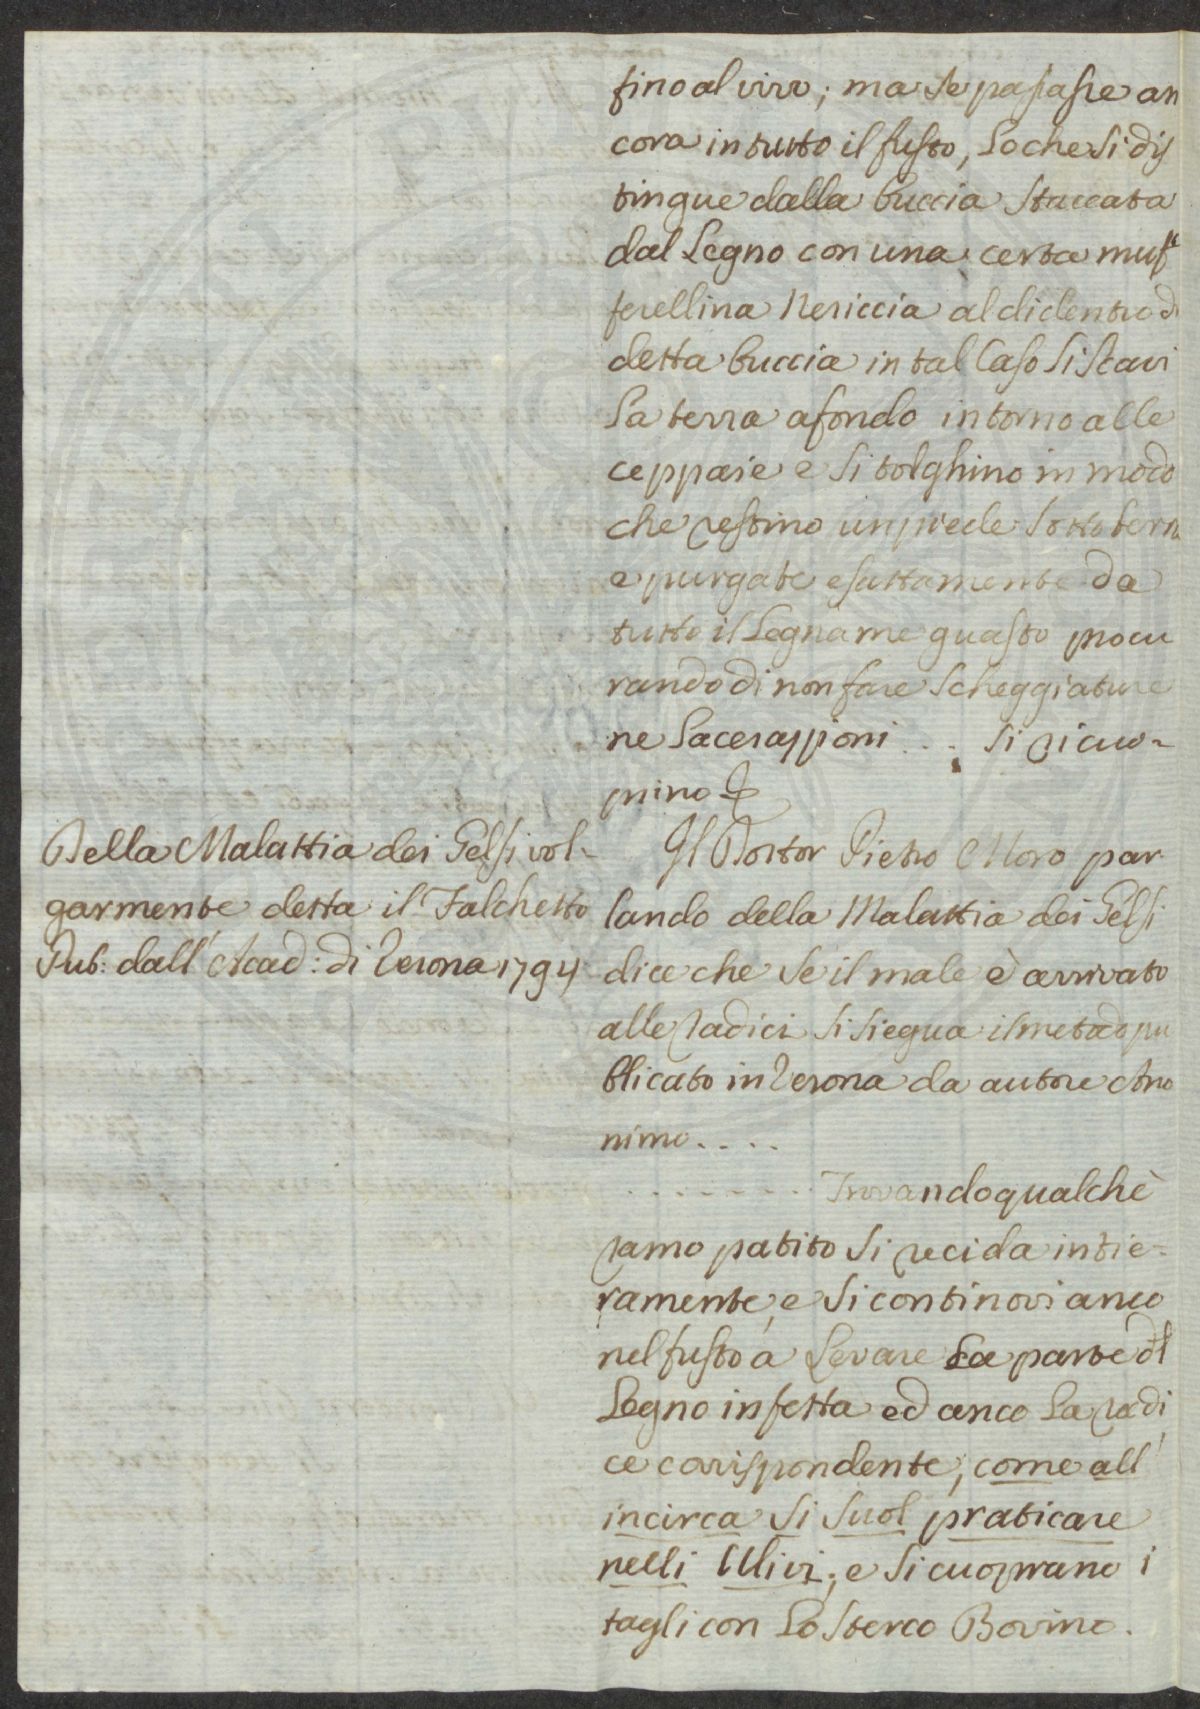 fino al vivo; ma se passasse an
cora in tutto il fusto, lo che si dis
tingue dalla buccia staccata
dal Legno con una certa muf
ferellina Nericcia al di dentro di
detta buccia in tal Caso si scavi
la terra a fondo intorno alle
ceppaie e si tolghino in modo
che restino un piede sotto terra
e purgate esattamente da
tutto il Legname guasto procu
rando di non fare scheggiature
ne Lacerazzioni ... si ricuo-
prino
Della Malattia dei Gelsi vol-
garmente detta il Falchetto
Pub: dall' Acad: di Verona 1794
Il Dottor Pietro Moro par
lando della Malattia dei Gelsi
dice che se il male è arrivato
alle radici si siegua il metodo pu
blicato in Verona da autore Ano
nimo....
........ Trovando qualchè
ramo patito si recida intie-
ramente, e si continovi anco
nel fusto à Levare La parte del
Legno infetta ed anco La radi
ce corrispondente, come all'
incirca si suol praticare
nelli Ulivi; e si cuoprano i
tagli con Lo sterco Bovino.